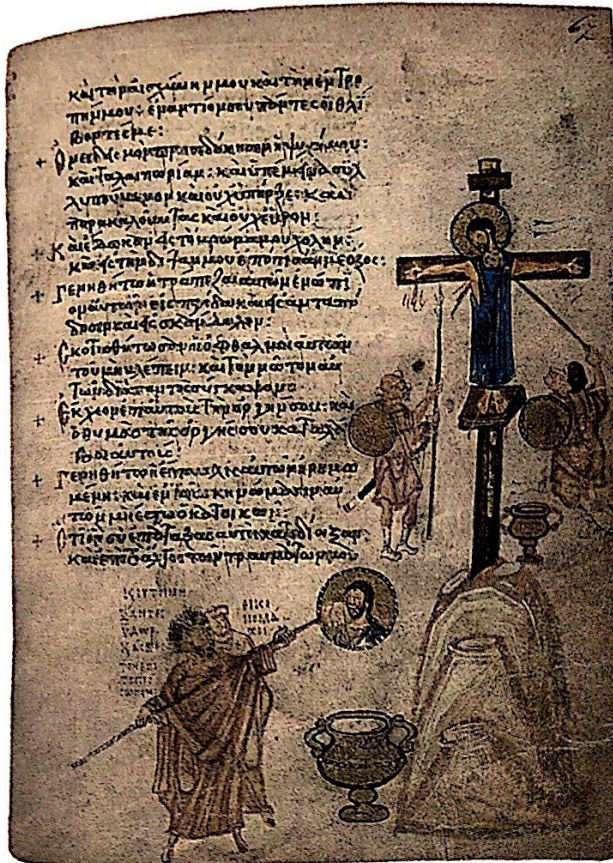 καὶ τὴν αἰσχύνην μου καὶ τὴν ἐντρο
πήν μου· ἐναντίον σου πάντες οἱ θλί
βοντές με:
+ Ὀνειδισμὸν προσεδόκησεν ἡ ψυχή μου:
καὶ ταλαιπωρίαν: καὶ ὑπέμεινα συλ
λυπούμενον καὶ οὐχ ὑπῆρξε: καὶ
παρακαλοῦντας καὶ οὐχ εὗρον:
+ Καὶ ἔδωκαν εἰς τὸ βρῶμά μου χολὴν:
καὶ εἰς τὴν δίψαν μου ἐπότισάν με ὄξος:
+ Γενηθήτω ἡ τράπεζα αὐτῶν ἐνώπι
ον αὐτῶν εἰς παγίδα καὶ εἰς ἀνταπό
δοσιν καὶ εἰς σκάνδαλον:
+ Σκοτισθήτωσαν οἱ ὀφθαλμοὶ αὐτῶν
τοῦ μὴ βλέπειν: καὶ τὸν νῶτον αὐ
τῶν διὰ παντὸς σύγκαμψον
+ Ἔκχεον ἐπ' αὐτοὺς τὴν ὀργήν σου: καὶ
ὁ θυμὸς τῆς ὀργῆς σου καταλά
βοι αὐτούς:
+ Γενηθήτω ἡ ἔπαυλις αὐτῶν ἠρημω
μένη: καὶ ἐν τοῖς σκηνώμασιν αὐ
τῶν μὴ ἔστω ὁ κατοικῶν:
+ Ὅτι ὃν σὺ ἐπάταξας αὐτοὶ κατεδίωξαν:
καὶ ἐπὶ τὸ ἄλγος τῶν τραυμάτων μου